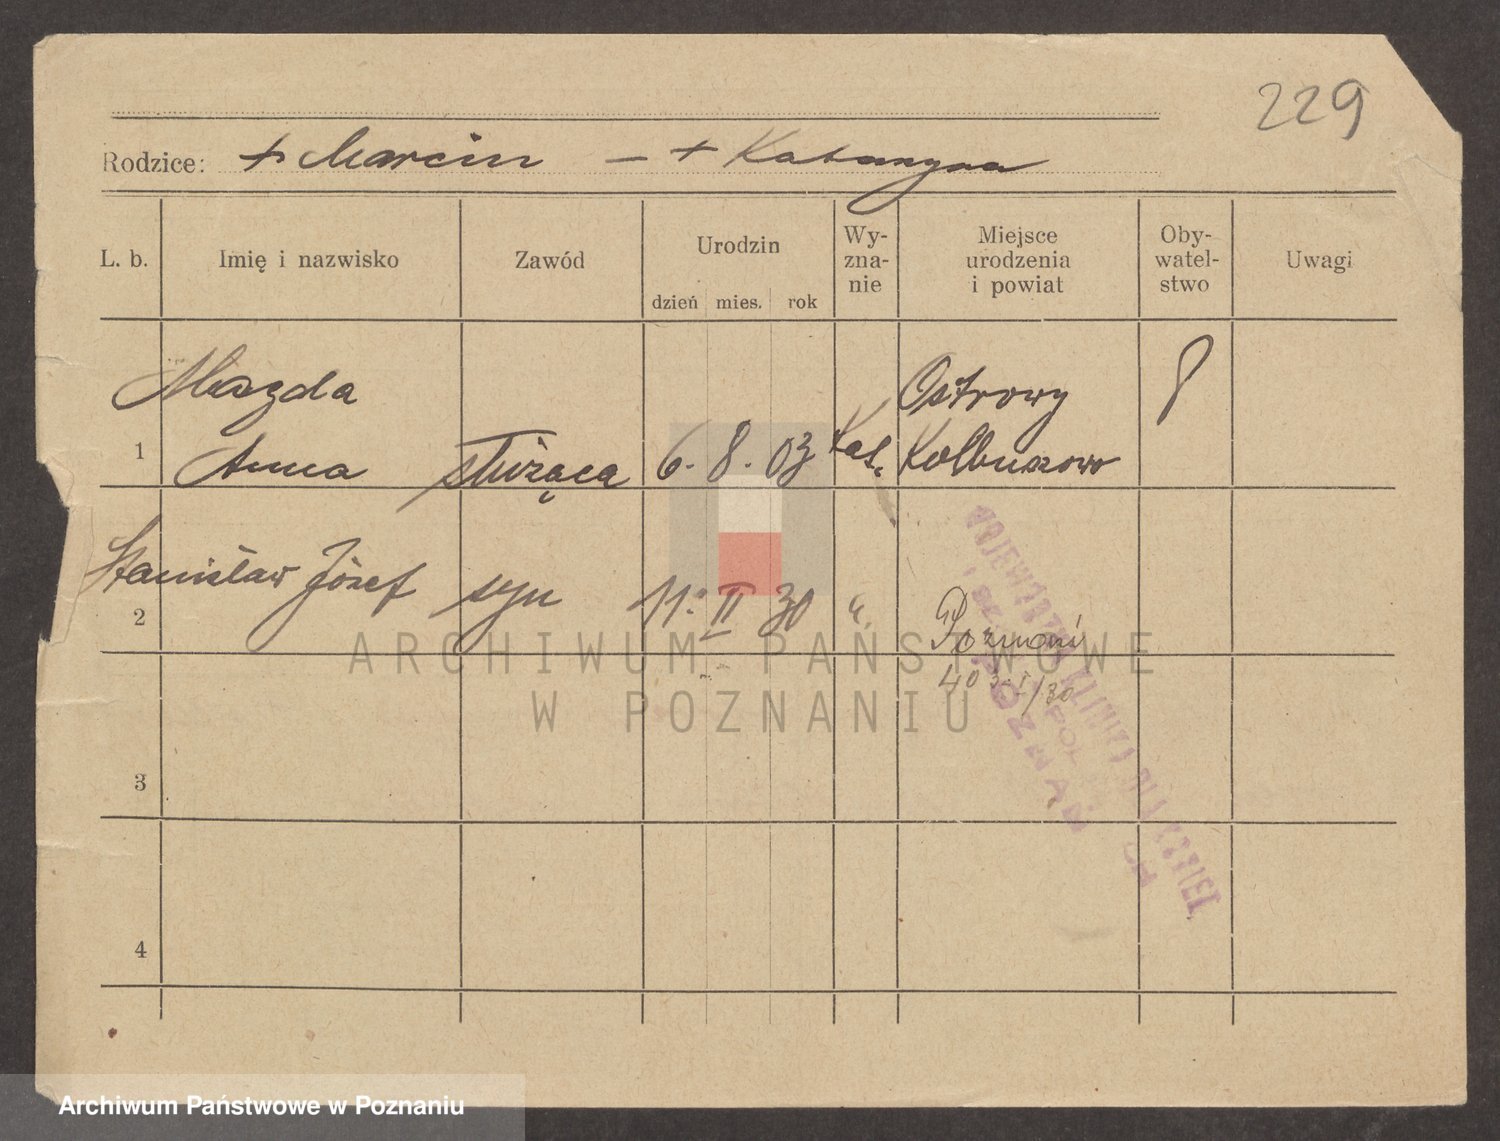 229
Rodzice: + Marcin — + Katarzyna
L. b. Imię i nazwisko Zawód Urodzin dzień mies. rok Wy-zna-nie Miejsce urodzenia i powiat Oby-watel-stwo Uwagi
Mazgda Ostrowy
1 Anna służąca 6. 8. 03 Kat. Kolbuszowo
Stanisław Józef syn 11. II 30 "
2 Poznań
40 I/30
3
4
POZNAŃ
ARCHIWUM PAŃSTWOWE
W POZNANIU
Archiwum Państwowe w Poznaniu